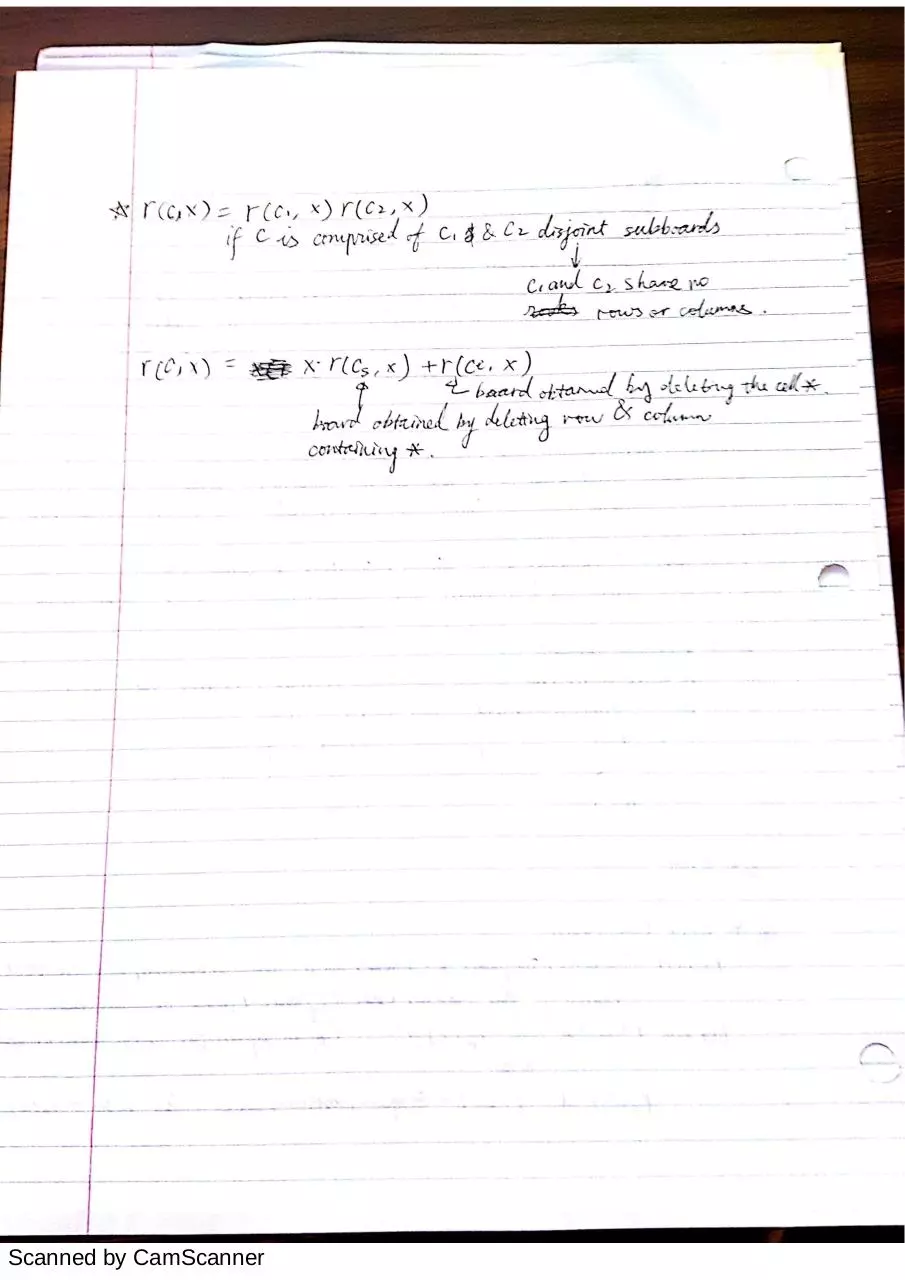 ☆ r(C,x) = r(C₁, x) r(C₂, x)
if C is comprised of C₁ & C₂ disjoint subboards
↓
C₁ and C₂ share no
rows or columns.
r(C, x) = x · r(Cs, x) + r(Ce, x)
board obtained by deleting the cell *.
board obtained by deleting row & column
containing *.
Scanned by CamScanner